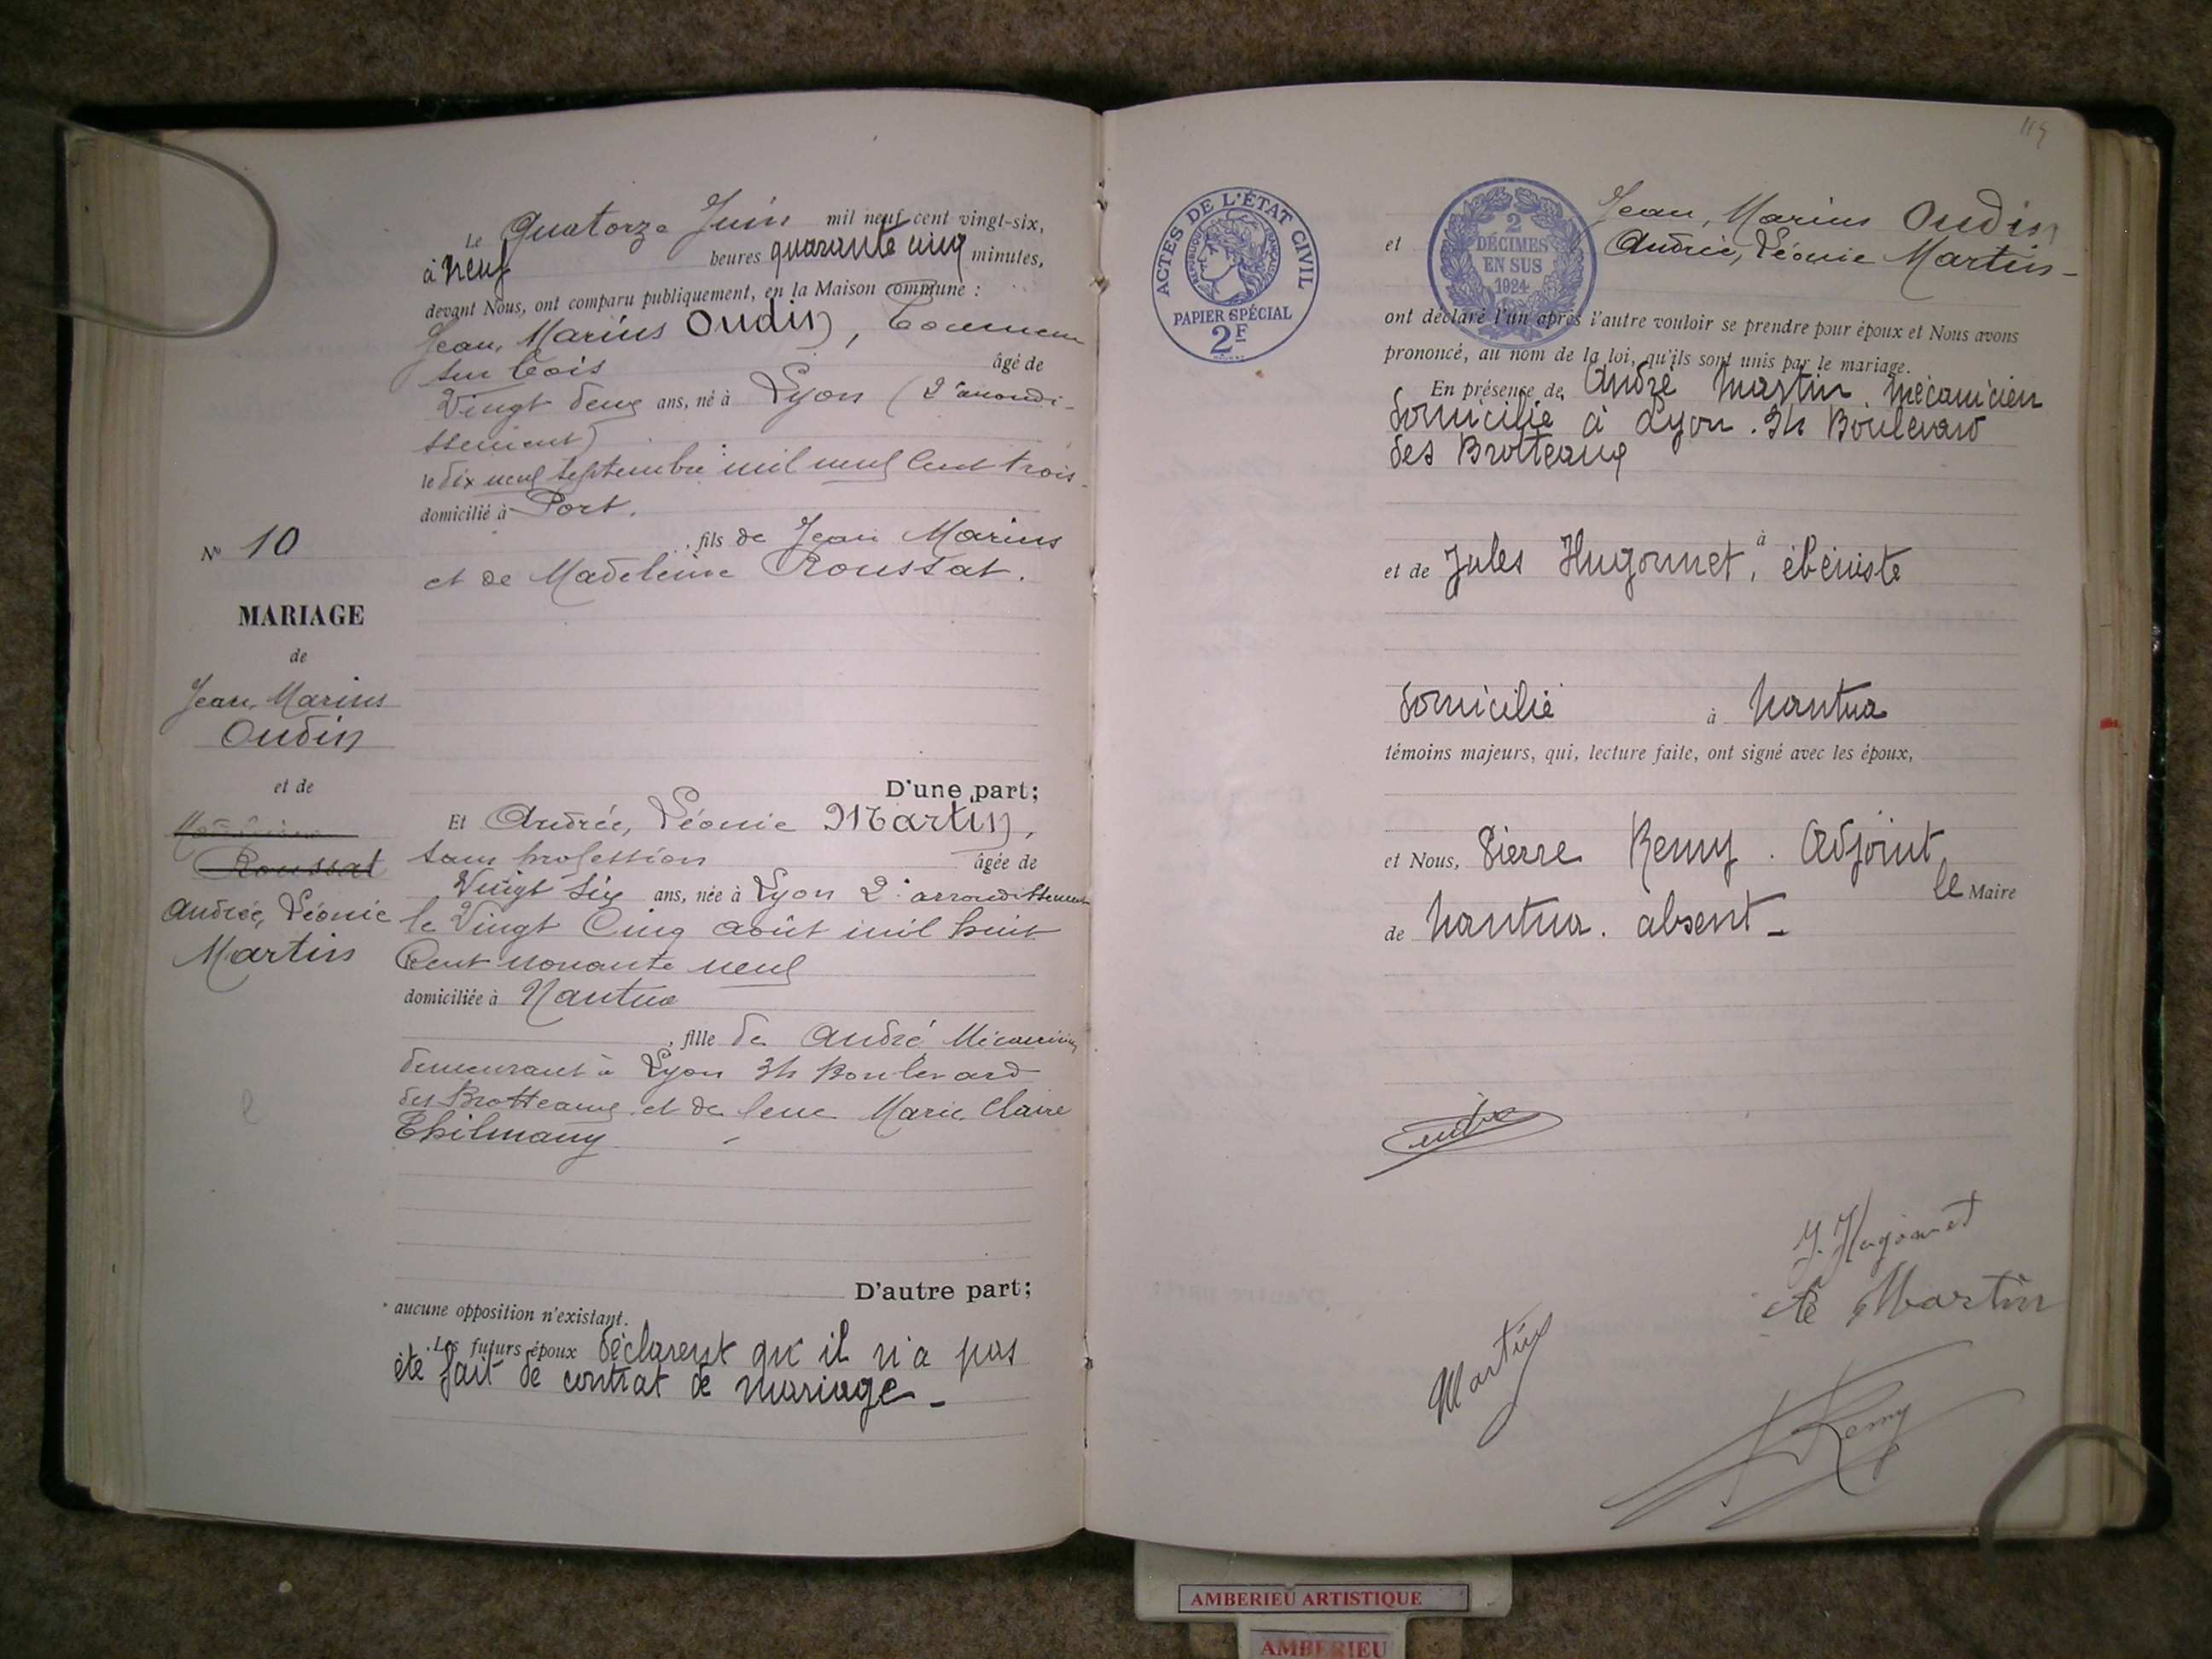 Le Quatorze Juin mil neuf cent vingt-six,
à neuf heures quarante cinq minutes,
devant Nous, ont comparu publiquement, en la Maison commune :
Jean, Marius Oudin, Tourneur
sur bois âgé de
Vingt deux ans, né à Lyon (2e arrondi-
ssement)
le dix neuf septembre mil neuf cent trois-
domicilié à Port.
, fils de Jean Marius
et de Madeleine Roussat.
No 10
MARIAGE
de
Jean, Marius
Oudin
et de
Roussat
Andrée, Léonie
Martin
D'une part;
Et Andrée, Léonie Martin,
sans profession âgée de
Vingt six ans, née à Lyon 2e arrondissement
le Vingt Cinq août mil huit
Cent nonante neuf
domiciliée à Nantua
, fille de André Mécanicien
demeurant à Lyon 34 Boulevard
des Brotteaux et de feue Marie Claire
Thilmany
D'autre part;
aucune opposition n'existant.
Les futurs époux déclarent qu'il n'a pas
été fait de contrat de mariage_
119
ACTES DE L'ÉTAT CIVIL
RÉPUBLIQUE FRANÇAISE
PAPIER SPÉCIAL
2F
2
DÉCIMES
EN SUS
1924
Jean, Marius Oudin
et Andrée, Léonie Martin-
ont déclaré l'un après l'autre vouloir se prendre pour époux et Nous avons
prononcé, au nom de la loi, qu'ils sont unis par le mariage.
En présence de André Martin. mécanicien
domicilié à Lyon. 34 Boulevard
des Brotteaux
et de Jules Hugonnet, à ébéniste
domicilié à Nantua
témoins majeurs, qui, lecture faite, ont signé avec les époux,
et Nous, Pierre Remy. Adjoint
le Maire
de Nantua. absent_
J. Hugonnet
Martin
Martin
Remy
AMBERIEU ARTISTIQUE
AMBERIEU